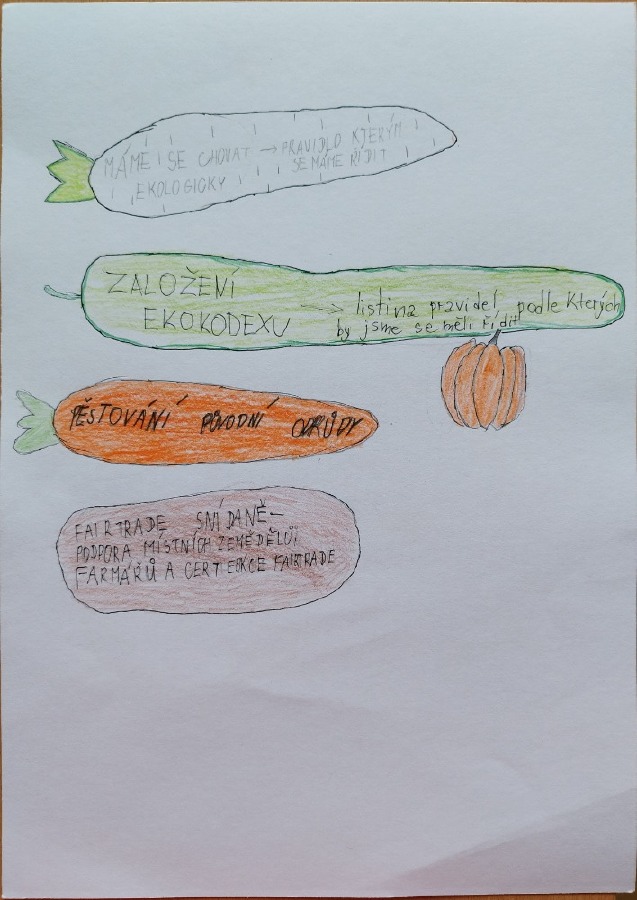 MÁME SE CHOVAT → PRAVIDLO KTERÝM
EKOLOGICKY SE MÁME ŘÍDIT
ZALOŽENÍ
EKOKODEXU → listina pravidel podle kterých
by jsme se měli řídit
PĚSTOVÁNÍ PŮVODNÍ ODRŮDY
FAIRTRADE SNÍDANĚ-
PODPORA MÍSTNÍCH
FARMÁŘŮ A FAIRTRADE